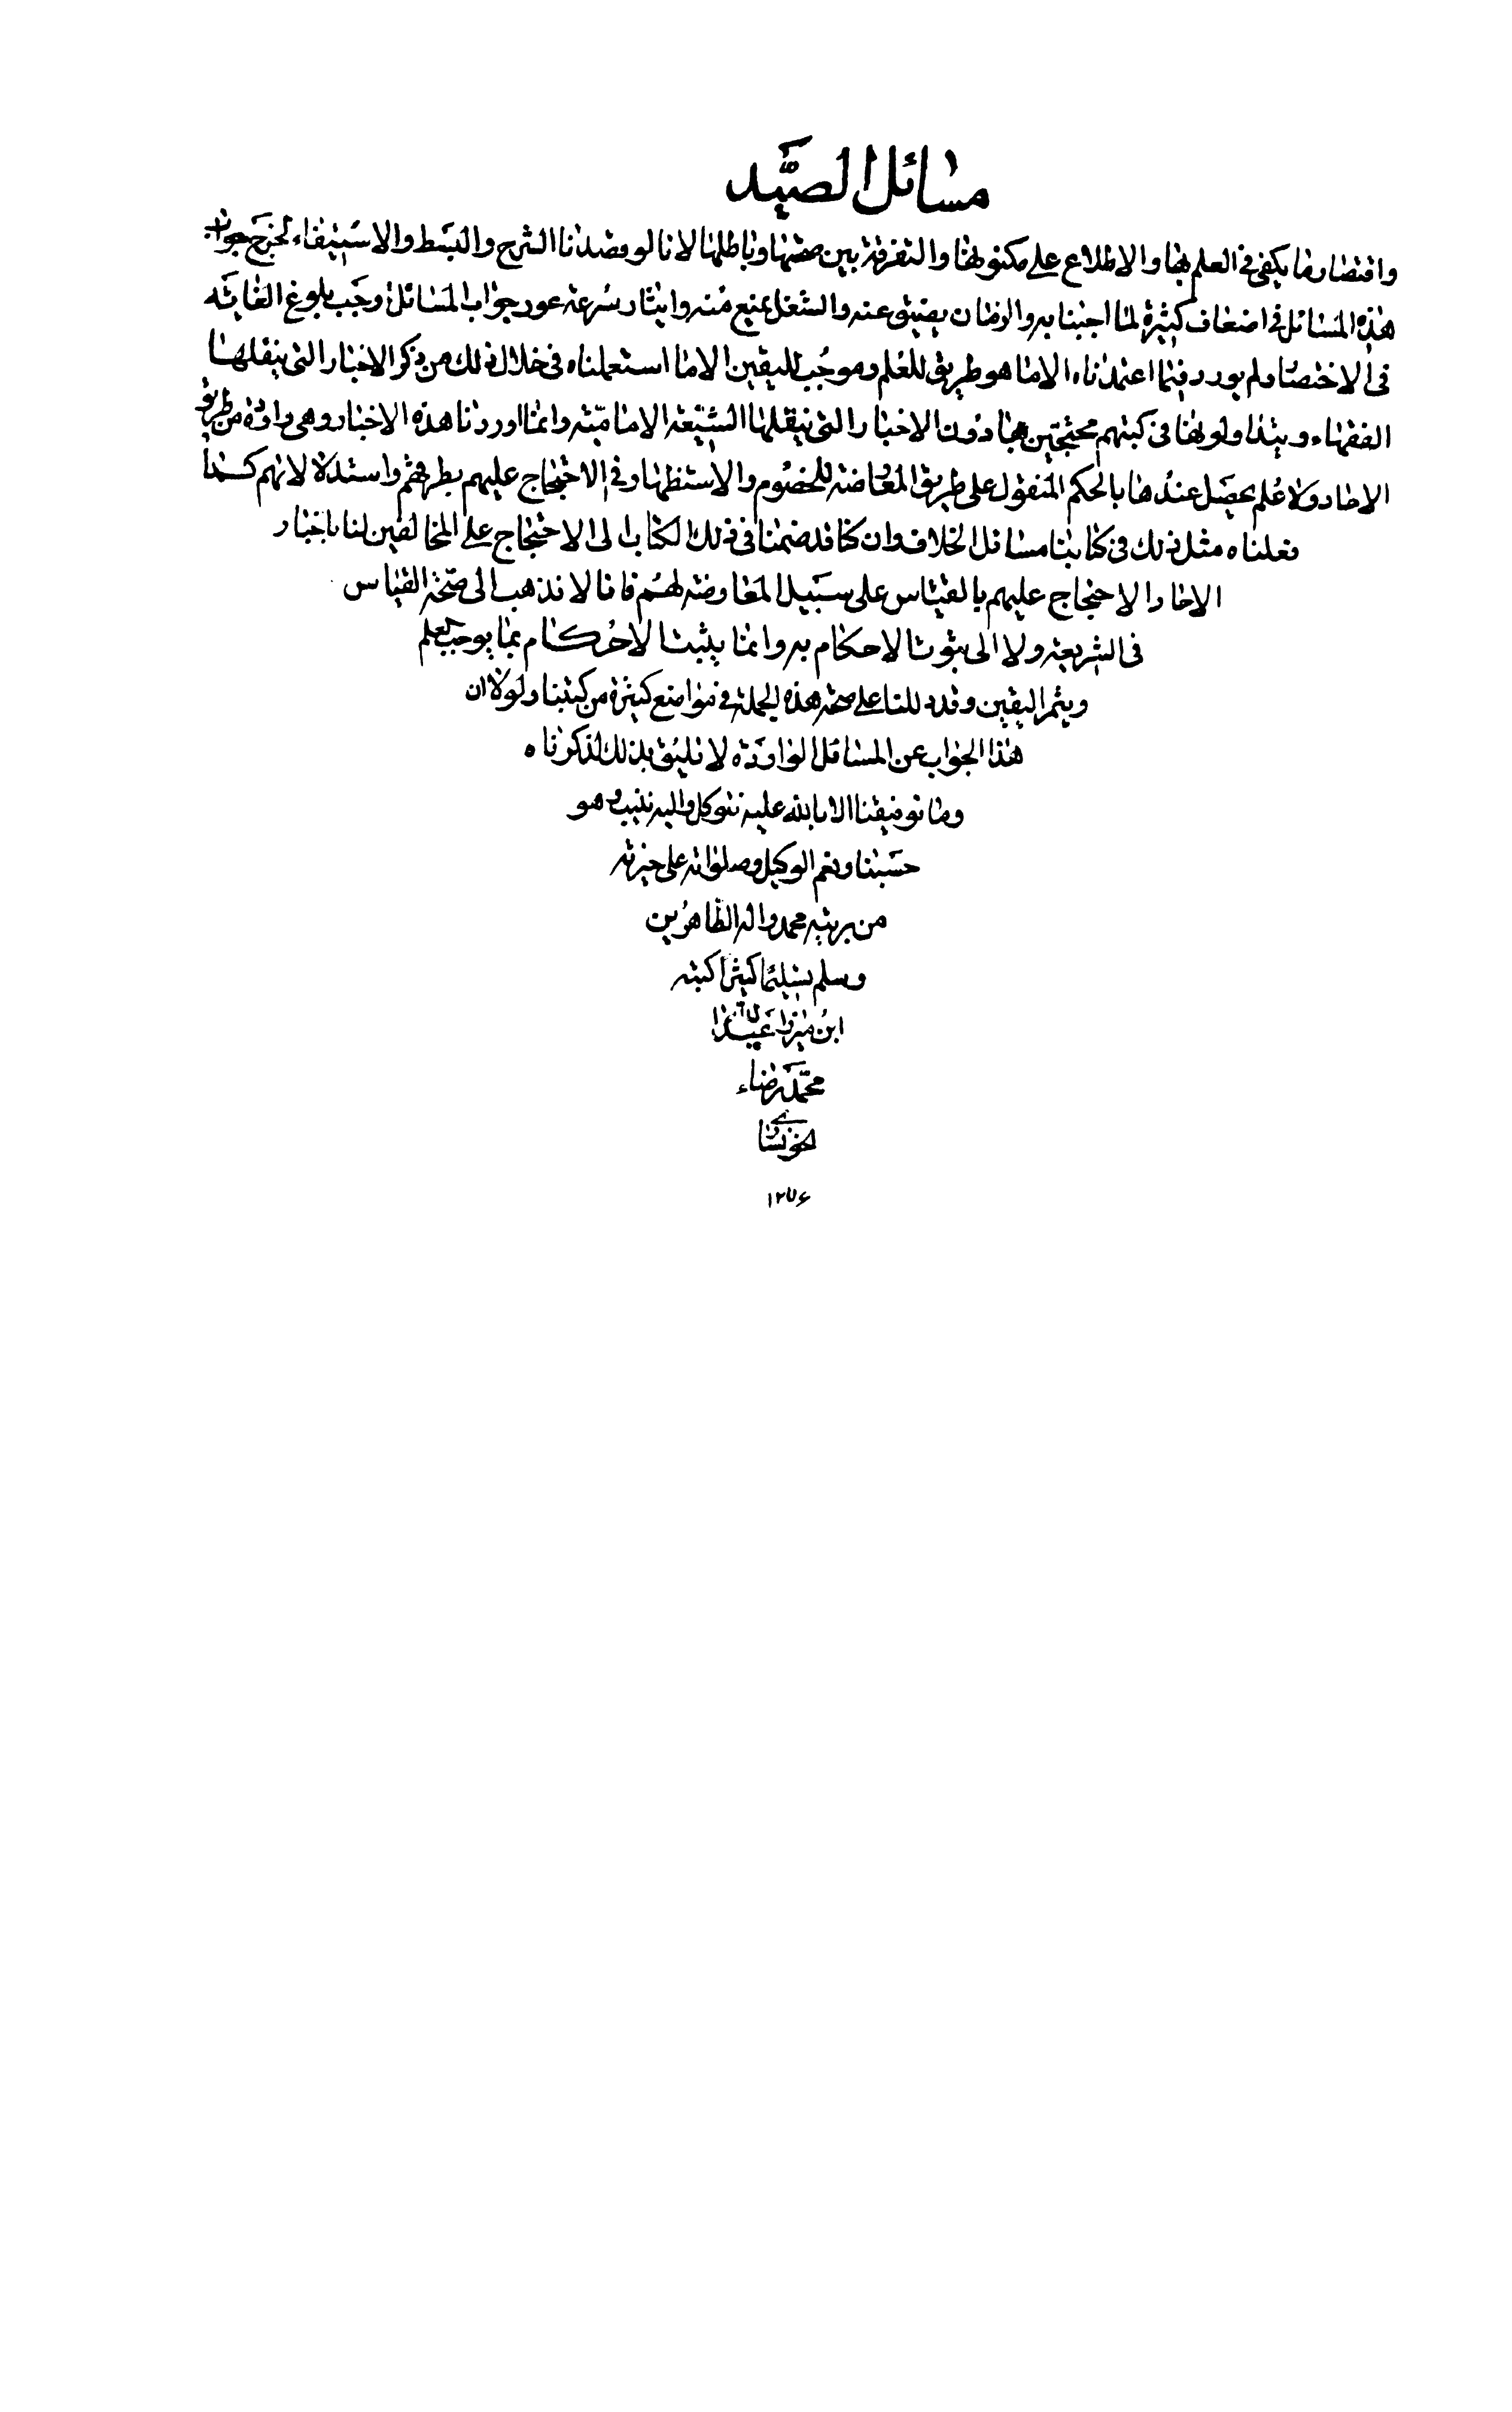 مسائل الصيد
واقتصار ما يكفى فى العلم بها والاطلاع على مكنونها والتفرقة بين صحتها وباطلها لانا لو قصدنا الشرح والبسط والاستيفاء لخرج جواب
هذه المسائل فى اضعاف كثيرة لما اجبنا به والزمان يضيق عنه والشغل يمنع منه وايثار سرعة عود جواب المسائل اوجب بلوغ الغاية
فى الاختصار ولم يورد فيما اعتمدناه الا ما هو طريق للعلم وموجب لليقين الا ما استعملناه فى خلال ذلك من ذكر الاخبار التى ينقلها
الفقهاء ويتداولونها فى كتبهم محتجين بها دون الاخبار التى ينقلها الشيعة الامامية وانما اوردنا هذه الاخبار وهى واردة من طريق
الاحاد ولا علم يحصل عندها بالحكم المنقول على طريق المعارضة للخصوم والاستظهار فى الاحتجاج عليهم بطرقهم واستدلالاتهم كما
فعلناه مثل ذلك فى كتابنا مسائل الخلاف وان كنا قد ضمنا فى ذلك الكتاب الى الاحتجاج على المخالفين لنا باخبار
الاحاد الاحتجاج عليهم بالقياس على سبيل المعارضة لهم فانا لا نذهب الى صحة القياس
فى الشريعة ولا الى ثبوت الاحكام به وانما يثبت الاحكام بما يوجب العلم
ويثمر اليقين وقد دللنا على صحة هذه الجملة فى مواضع كثيرة من كتبنا ولولا ان
هذا الجواب عن المسائل الواردة لا تليق بذلك لذكرناه
وما توفيقنا الا بالله عليه نتوكل واليه ننيب وهو
حسبنا ونعم الوكيل وصلواته على خيرته
من بريته محمد واله الطاهرين
وسلم تسليما كثيرا كتبه
ابن ميرزا
محمد رضاء
الخونسارى
١٢٧۶